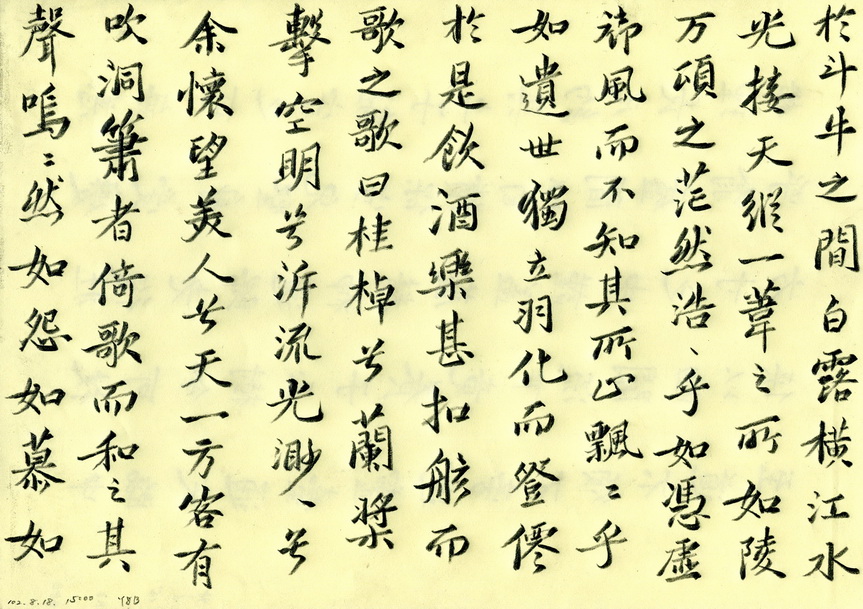 於斗牛之間白露橫江水
光接天縱一葦之所如陵
万頃之茫然浩〻乎如憑虛
御風而不知其所止飄〻乎
如遺世獨立羽化而登僊
於是飲酒樂甚扣舷而
歌之歌曰桂棹兮蘭槳
擊空明兮泝流光渺〻兮
余懷望美人兮天一方客有
吹洞簫者倚歌而和之其
聲嗚〻然如怨如慕如
102.8.18. 15:00